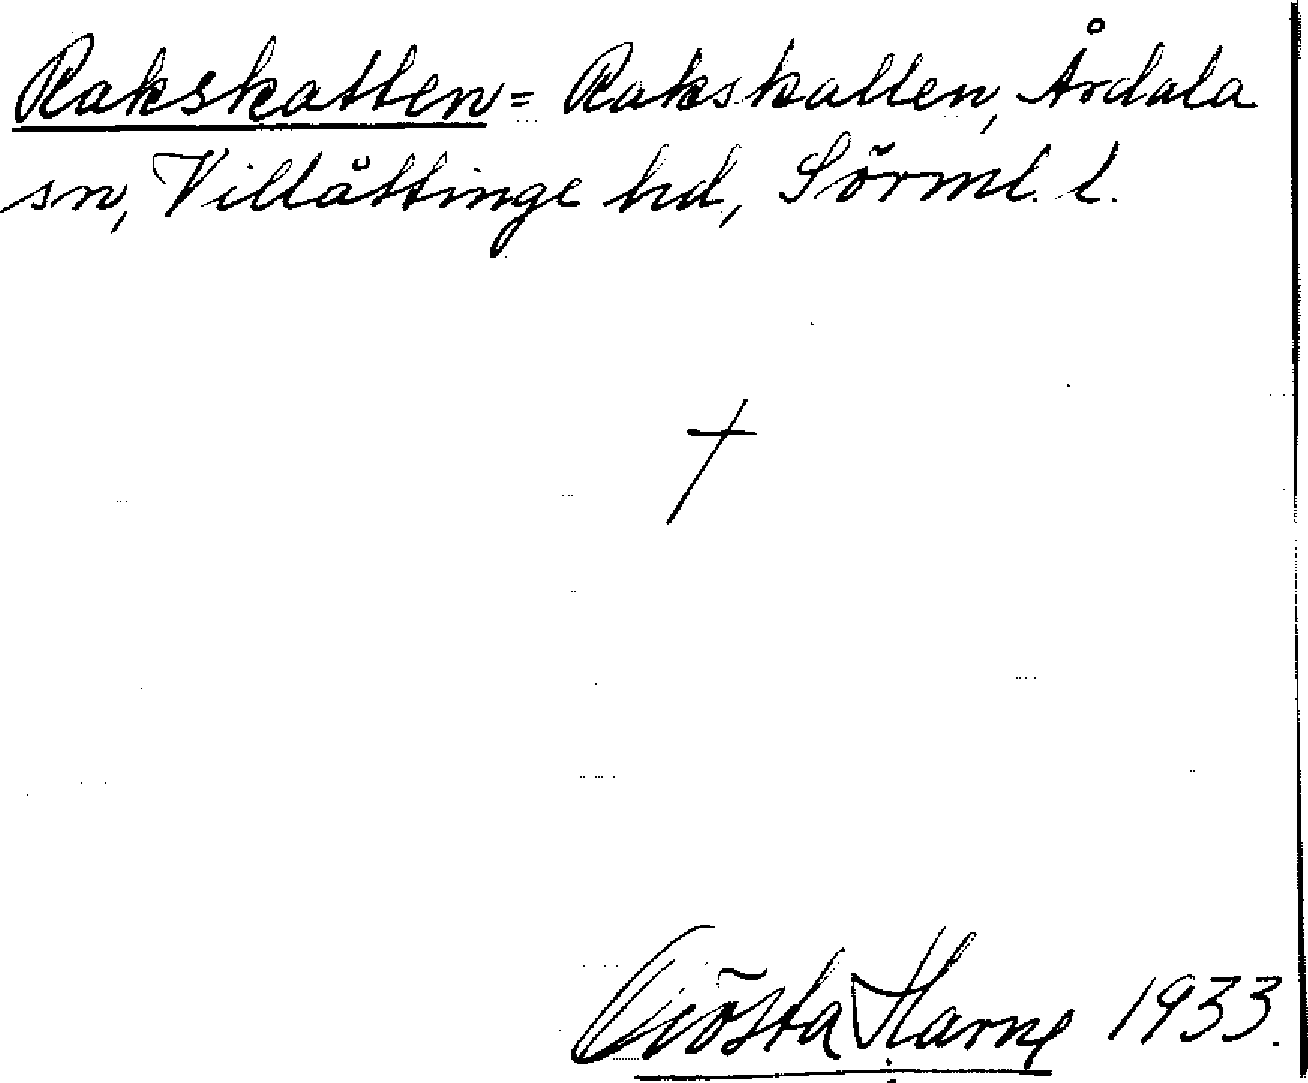 Rakskatten = Rakskallen, Årdala
sn, Villåttinge hd, Sörml. l.
Gösta 1933.